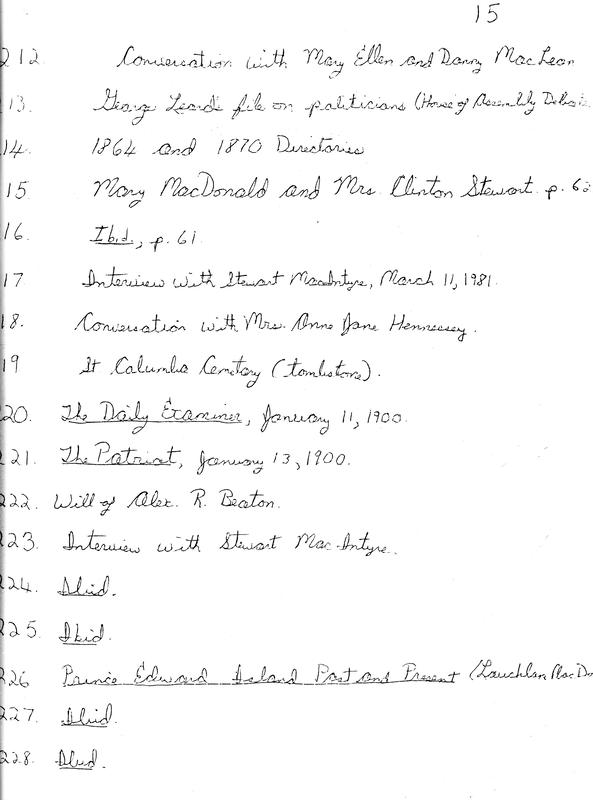 15
212. Conversation with Mary Ellen and Danny MacLean
13. George Leard's file on politicians (House of Assembly Debates
14. 1864 and 1870 Directories
15 Mary MacDonald and Mrs. Clinton Stewart p. 62
16. Ibid., p. 61.
17 Interview with Stewart MacIntyre, March 11, 1981.
18. Conversation with Mrs. Anne Jane Hennessey.
19 St Columba Cemetary (tombstone).
20. The Daily Examiner, January 11, 1900.
21. The Patriot, January 13, 1900.
222. Will of Alex. R. Beaton.
223. Interview with Stewart MacIntyre.
224. Ibid.
225. Ibid.
226 Prince Edward Island Past and Present (Lauchlan MacDo
227. Ibid.
228. Ibid.